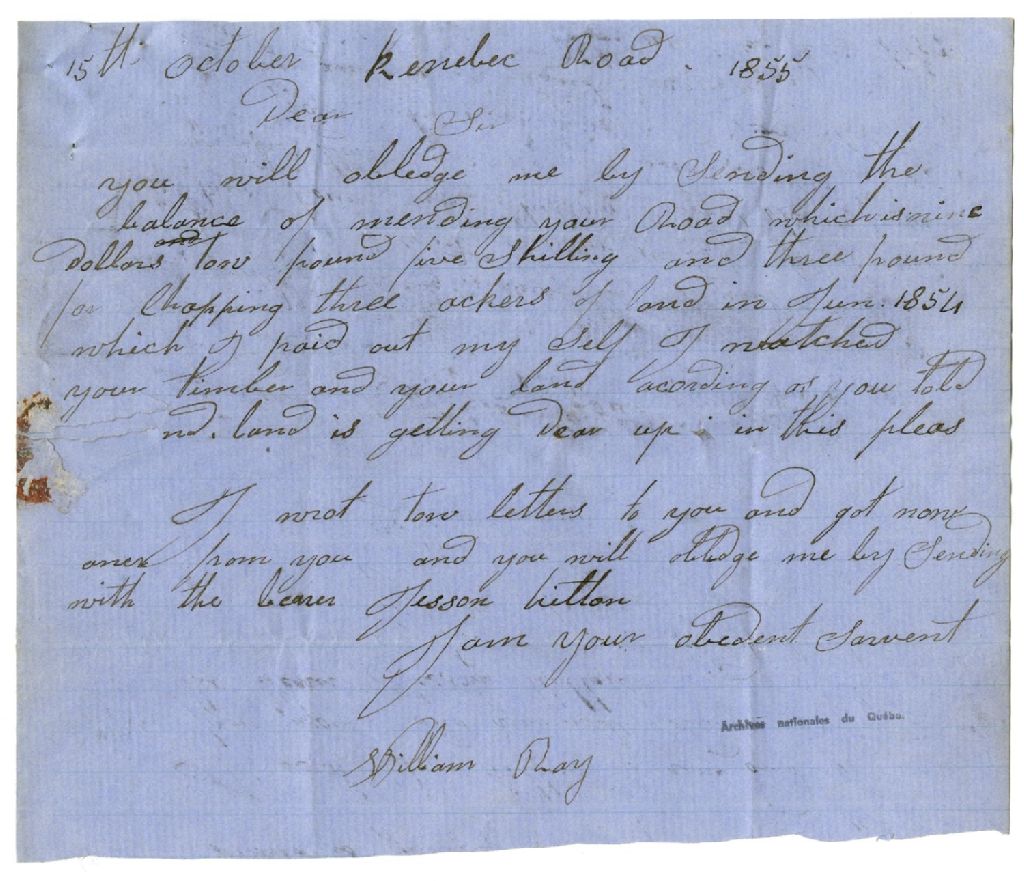 15th October Kenebec Road. 1855
Dear Sir
you will obledge me by Sending the
balance of mending your Road which is nine
dollars and tow pound five Shilling and three pound
for Chopping three ackers of land in Jun. 1854
which I paid out my Self I watched
your timber and your land acording as you told
nd. land is getting Dear up in this pleas
I wrot tow letters to you and got none
from you and you will obledge me by Sending
with the bearer Jesson
I am your obedent Sarvent
William Ray
Archives nationales du Québec.